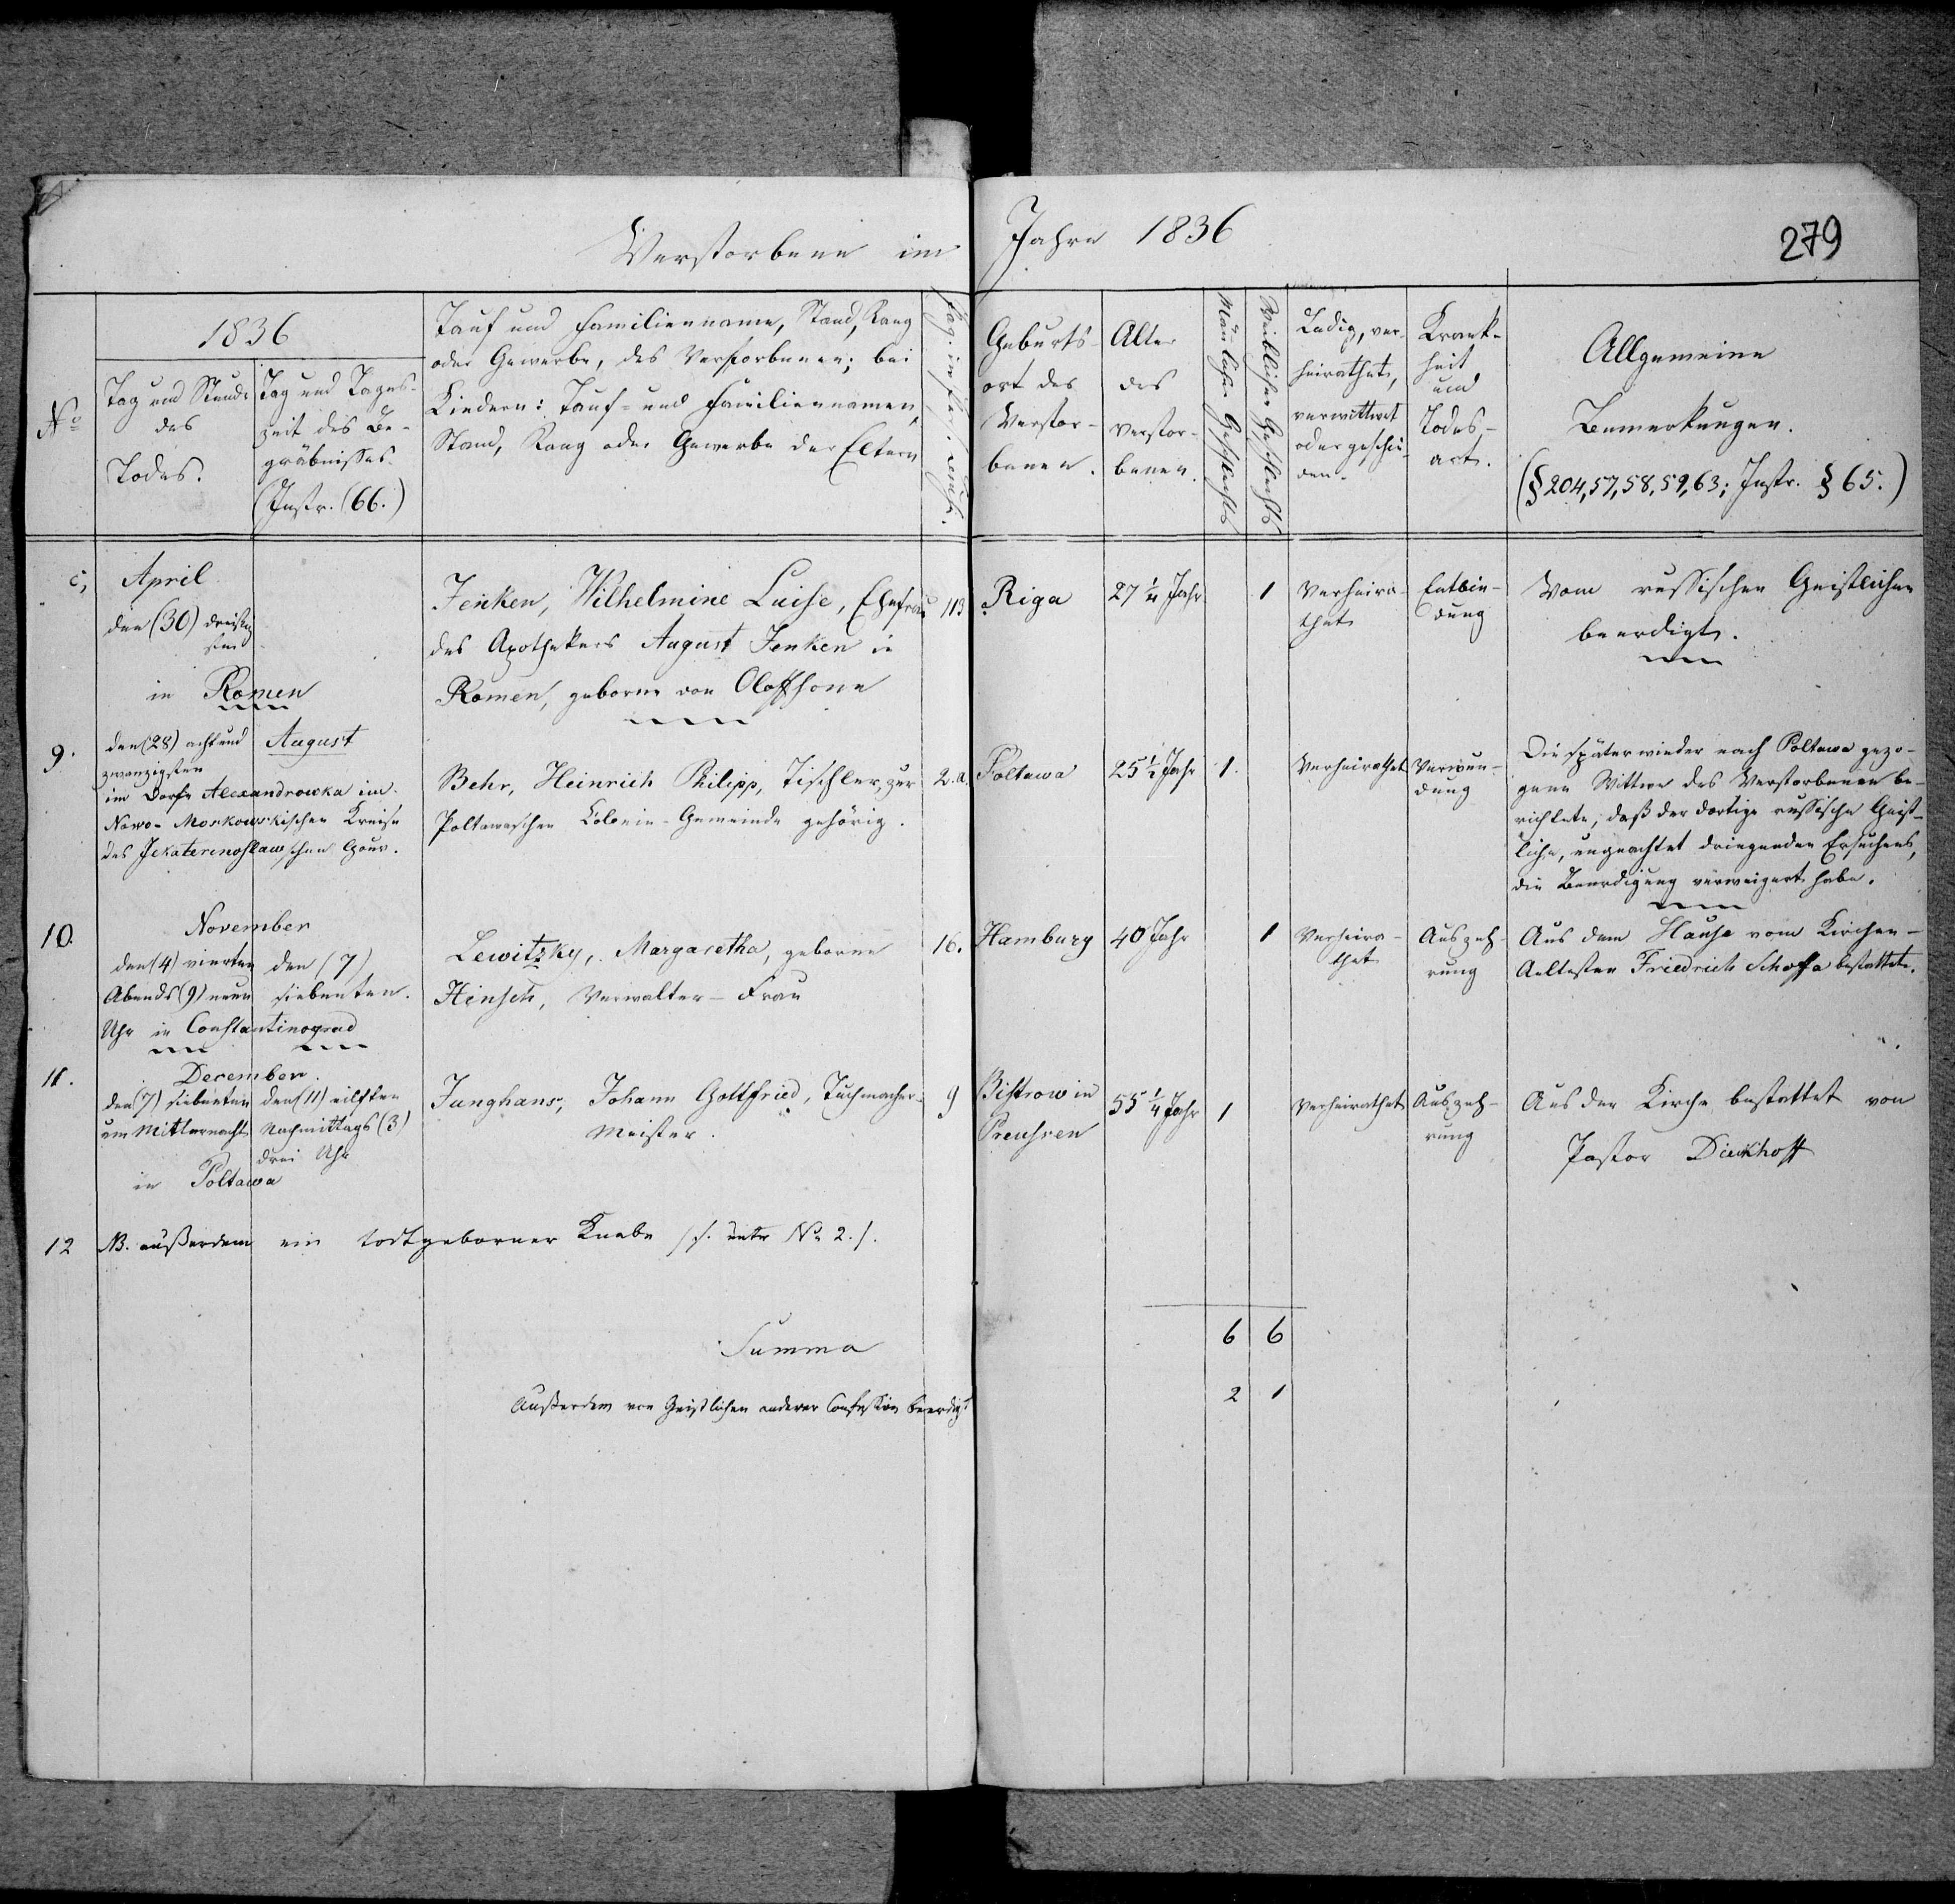 Verstorbene im Jahre 1836
279
No
1836
Tag und Stunde
des
Todes.
Tag und Tages-
zeit des Be-
gräbnisses.
(Instr. (66.)
Tauf und Familienname, Stand, Rang
oder Gewerbe, des Verstorbenen; bei
Kindern: Tauf- und Familiennamen,
Stand, Rang oder Gewerbe der Eltern
Geburts-
ort des
Verstor-
benen.
Alter
des
Verstor-
benen.
Männlichen Geschlechts
Weiblichen Geschlechts
Ledig, ver-
heirathet,
verwittwet
oder geschie-
den.
Krank-
heit
und
Todes-
art.
Allgemeine
Bemerkungen.
(§ 204, 57, 58, 59, 63; Instr. § 65.)
April
den (30) dreißig
sten
in Romen
Jenken, Wilhelmine Luise, Ehefrau
des Apothekers August Jenken in
Romen, geborne von Oloffsone
113
Riga
27 Jahr
1
Verheira-
thet
Entbin-
dung
Vom russischen Geistlichen
beerdigt.
9.
den (28) achtund
zwanzigsten
August
im Dorfe Alexandrowka im
Nowo-Moskowskischen Kreise
des Jekaterinoslawschen Gouv.
Behr, Heinrich Philipp, Tischler, zur
Poltawaschen Colonie-Gemeinde gehörig.
2.a.
Poltawa
25 1/2 Jahr
1.
Verheirathet
Verwun-
dung
Die später wieder nach Poltawa gezo-
gene Wittwe des Verstorbenen be-
richtete, daß der dortige russische Geist-
liche, ungeachtet dringenden Ersuchens,
die Beerdigung verweigert habe.
10.
November
den (4) vierten
Abends (9) neun
Uhr in Constantinograd
den (7)
siebenten.
Lewitzky, Margaretha, geborne
Hinsch, Verwalter-Frau
16.
Hamburg
40 Jahr
1
Verheira-
thet
Auszeh-
rung
Aus dem Hause vom Kirchen-
Aeltesten Friedrich Schoffa bestattete.
11.
December.
den (7) siebenten
um Mitternacht
den (11) eilften
Nachmittags (3)
drei Uhr
in Poltawa
Junghans, Johann Gottfried, Tuchmacher-
Meister.
9
Bistrow in
Preussen
55 1/4 Jahr
1
Verheirathet
Auszeh-
rung
Aus der Kirche bestattet von
Pastor Dieckhoff
12
NB. außerdem ein todtgeborner Knabe /s. unter No 2./.
Summa
6 6
Außerdem von Geistlichen anderer Confession beerdigt
2 1